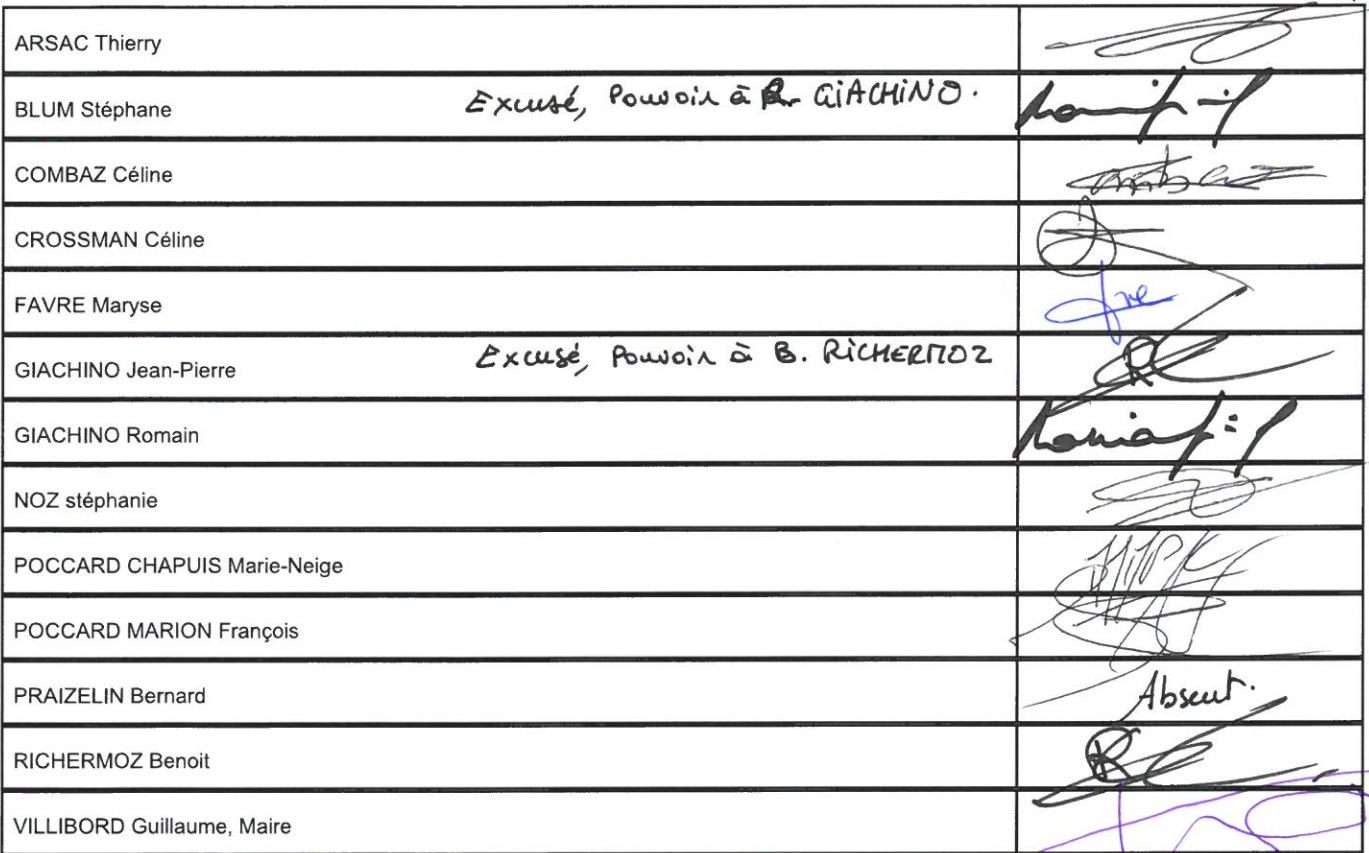 ARSAC Thierry
BLUM Stéphane Excusé, Pouvoir à R. GIACHINO.
COMBAZ Céline
CROSSMAN Céline
FAVRE Maryse
GIACHINO Jean-Pierre Excusé, Pouvoir à B. RICHERMOZ
GIACHINO Romain
NOZ stéphanie
POCCARD CHAPUIS Marie-Neige
POCCARD MARION François
PRAIZELIN Bernard Absent.
RICHERMOZ Benoit
VILLIBORD Guillaume, Maire